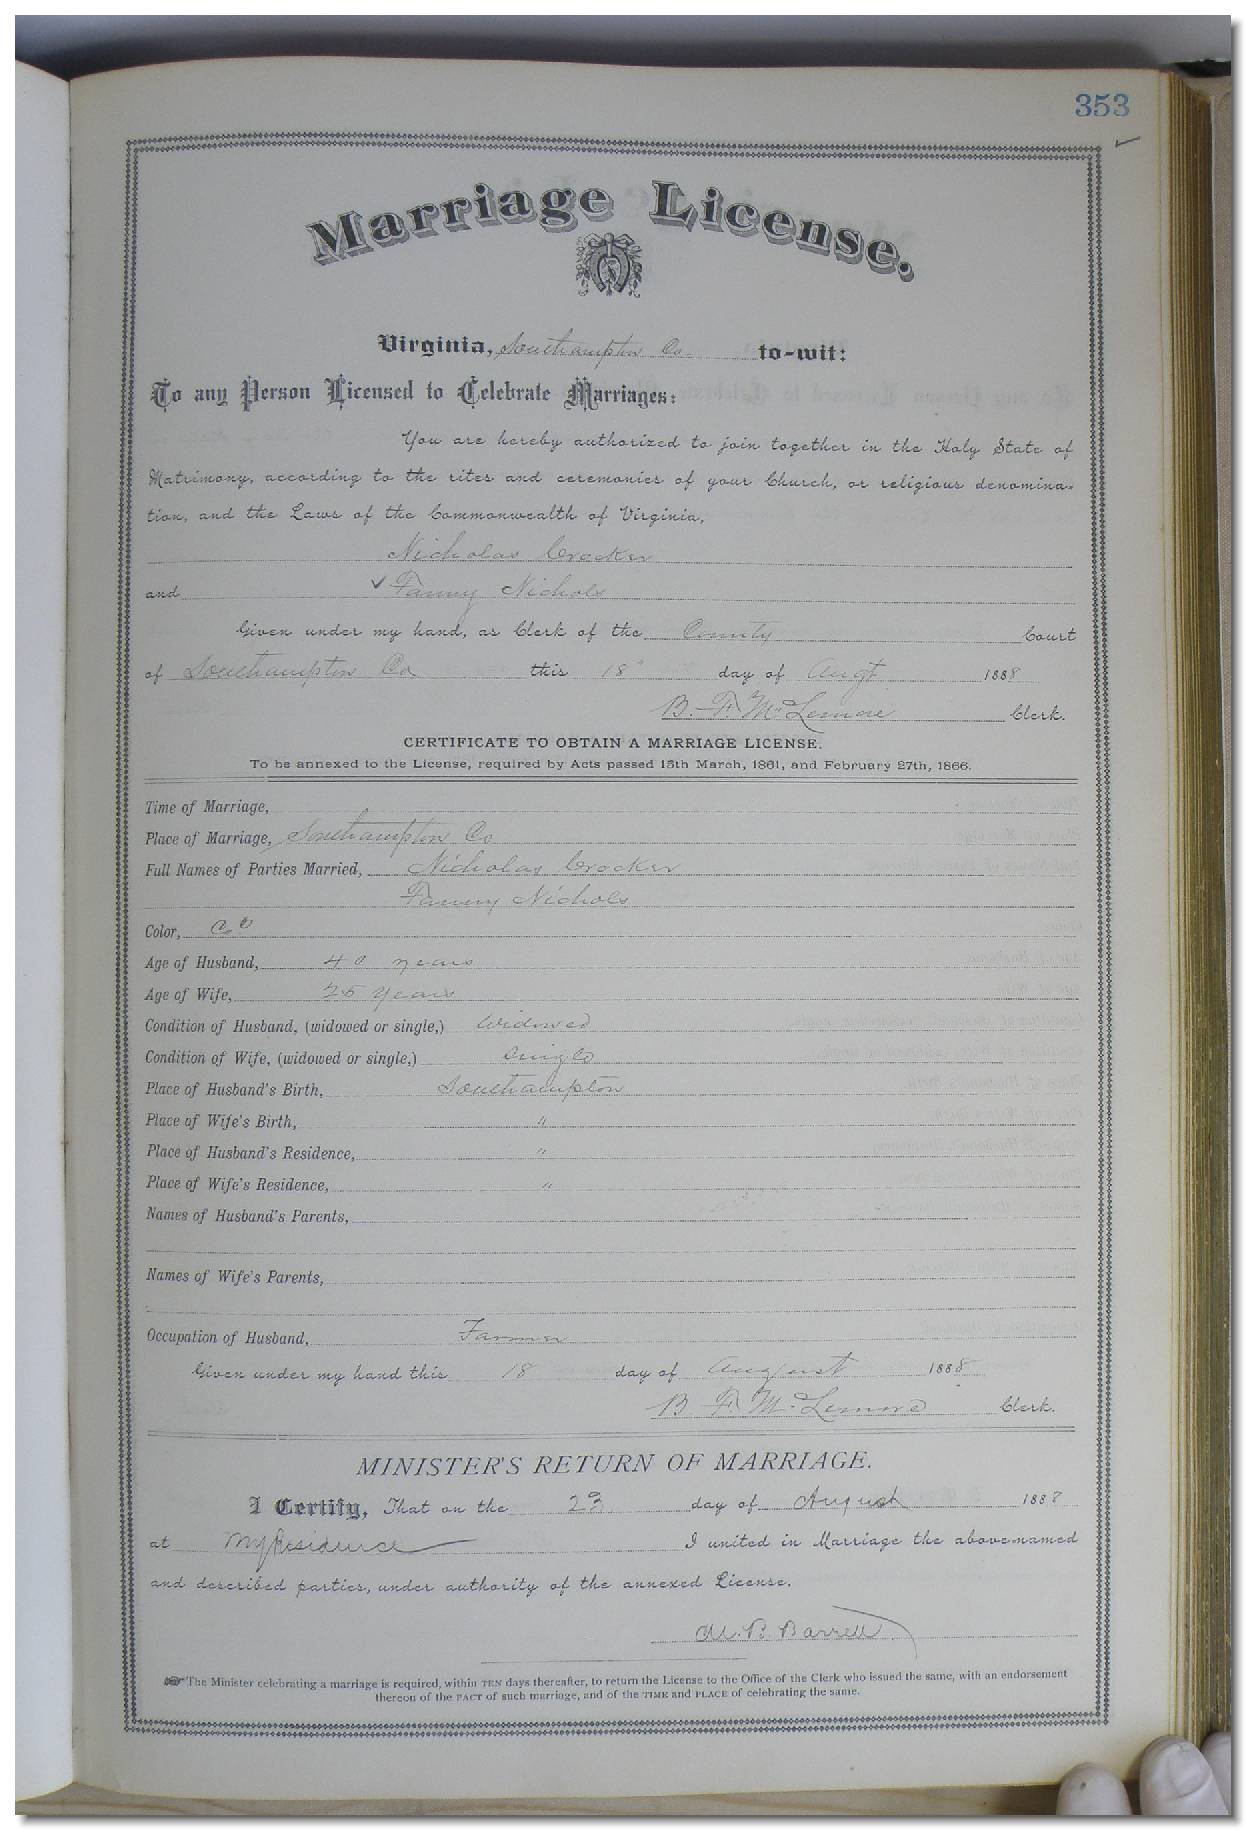 353
Marriage License.
Virginia, Southampton Co. to-wit:
To any Person Licensed to Celebrate Marriages:
You are hereby authorized to join together in the Holy State of
Matrimony, according to the rites and ceremonies of your Church, or religious denomina-
tion, and the Laws of the Commonwealth of Virginia,
Nicholas Crocker
and Fanny Nichols
Given under my hand, as Clerk of the County Court
of Southampton Co this 18" day of Augt 1888
B. F. McLemore Clerk.
CERTIFICATE TO OBTAIN A MARRIAGE LICENSE.
To be annexed to the License, required by Acts passed 15th March, 1861, and February 27th, 1866.
Time of Marriage,
Place of Marriage, Southampton Co
Full Names of Parties Married, Nicholas Crocker
Fanny Nichols
Color, Cold
Age of Husband, 40 years
Age of Wife, 25 years
Condition of Husband, (widowed or single,) Widowed
Condition of Wife, (widowed or single,) Single
Place of Husband's Birth, Southampton
Place of Wife's Birth, "
Place of Husband's Residence, "
Place of Wife's Residence, "
Names of Husband's Parents,
Names of Wife's Parents,
Occupation of Husband, Farmer
Given under my hand this 18 day of August 1888
B. F. McLemore Clerk.
MINISTER'S RETURN OF MARRIAGE.
I Certify, That on the 23 day of August 1888
at My Residence I united in Marriage the above-named
and described parties, under authority of the annexed License.
M. B. Barrett
The Minister celebrating a marriage is required, within TEN days thereafter, to return the License to the Office of the Clerk who issued the same, with an endorsement
thereon of the FACT of such marriage, and of the TIME and PLACE of celebrating the same.